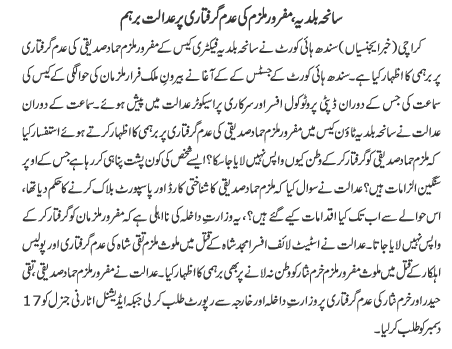 سانحہ بلدیہ، مفرور ملزم کی عدم گرفتاری پر عدالت برہم
کراچی (خبر ایجنسیاں) سندھ ہائی کورٹ نے سانحہ بلدیہ فیکٹری کیس کے مفرور ملزم حماد صدیقی کی عدم گرفتاری
پر برہمی کا اظہار کیا ہے۔ سندھ ہائی کورٹ کے جسٹس کے کے آغا نے بیرون ملک فرار ملزمان کی حوالگی کے کیس کی
سماعت کی جس کے دوران ڈپٹی پروٹوکول افسر اور سرکاری پراسیکیوٹر عدالت میں پیش ہوئے۔ سماعت کے دوران
عدالت نے سانحہ بلدیہ ٹاؤن کیس میں مفرور ملزم حماد صدیقی کی عدم گرفتاری پر برہمی کا اظہار کرتے ہوئے استفسار کیا
کہ ملزم حماد صدیقی کو گرفتار کر کے وطن کیوں واپس نہیں لایا جاسکا؟ ایسے شخص کی کون پشت پناہی کر رہا ہے جس کے اوپر
سنگین الزامات ہیں؟ عدالت نے سوال کیا کہ ملزم حماد صدیقی کا شناختی کارڈ اور پاسپورٹ بلاک کرنے کا حکم دیا تھا،
اس حوالے سے اب تک کیا اقدامات کیے گئے ہیں؟، یہ وزارت داخلہ کی نااہلی ہے کہ مفرور ملزمان کو گرفتار کر کے
واپس نہیں لایا جاتا۔ عدالت نے اسٹیٹ لائف افسر امجد شاہ کے قتل میں ملوث ملزم تقی شاہ کی عدم گرفتاری اور پولیس
اہلکار کے قتل میں ملوث مفرور ملزم خرم نثار کو وطن نہ لانے پر بھی برہمی کا اظہار کیا۔ عدالت نے مفرور ملزم حماد صدیقی، تقی
حیدر اور خرم نثار کی عدم گرفتاری پر وزارت داخلہ اور خارجہ سے رپورٹ طلب کر لی جبکہ ایڈیشنل اٹارنی جنرل کو 17
دسمبر کو طلب کر لیا۔